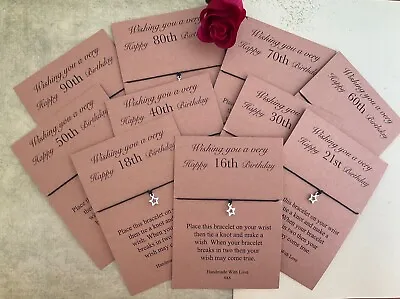 Wishing you a very
Happy 90th Birthday
Wishing you a very
Happy 80th Birthday
Wishing you a very
Happy 70th Birthday
Wishing you a very
Happy 60th Birthday
Wishing you a very
Happy 50th Birthday
Wishing you a very
Happy 40th Birthday
Wishing you a very
Happy 30th Birthday
Wishing you a very
Happy 18th Birthday
Place this bracelet on your wrist
then tie a knot and make a
wish. When your bracelet
breaks in two then your wish
may come true.
Handmade With Love
Wishing you a very
Happy 16th Birthday
Place this bracelet on your wrist
then tie a knot and make a
wish. When your bracelet
breaks in two then your wish
may come true.
Handmade With Love
xxx
Wishing you a very
Happy 21st Birthday